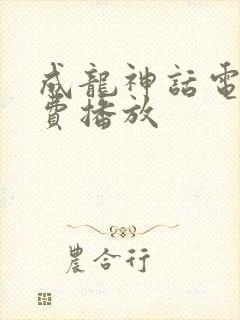 成龍神話電
費播放
農合行